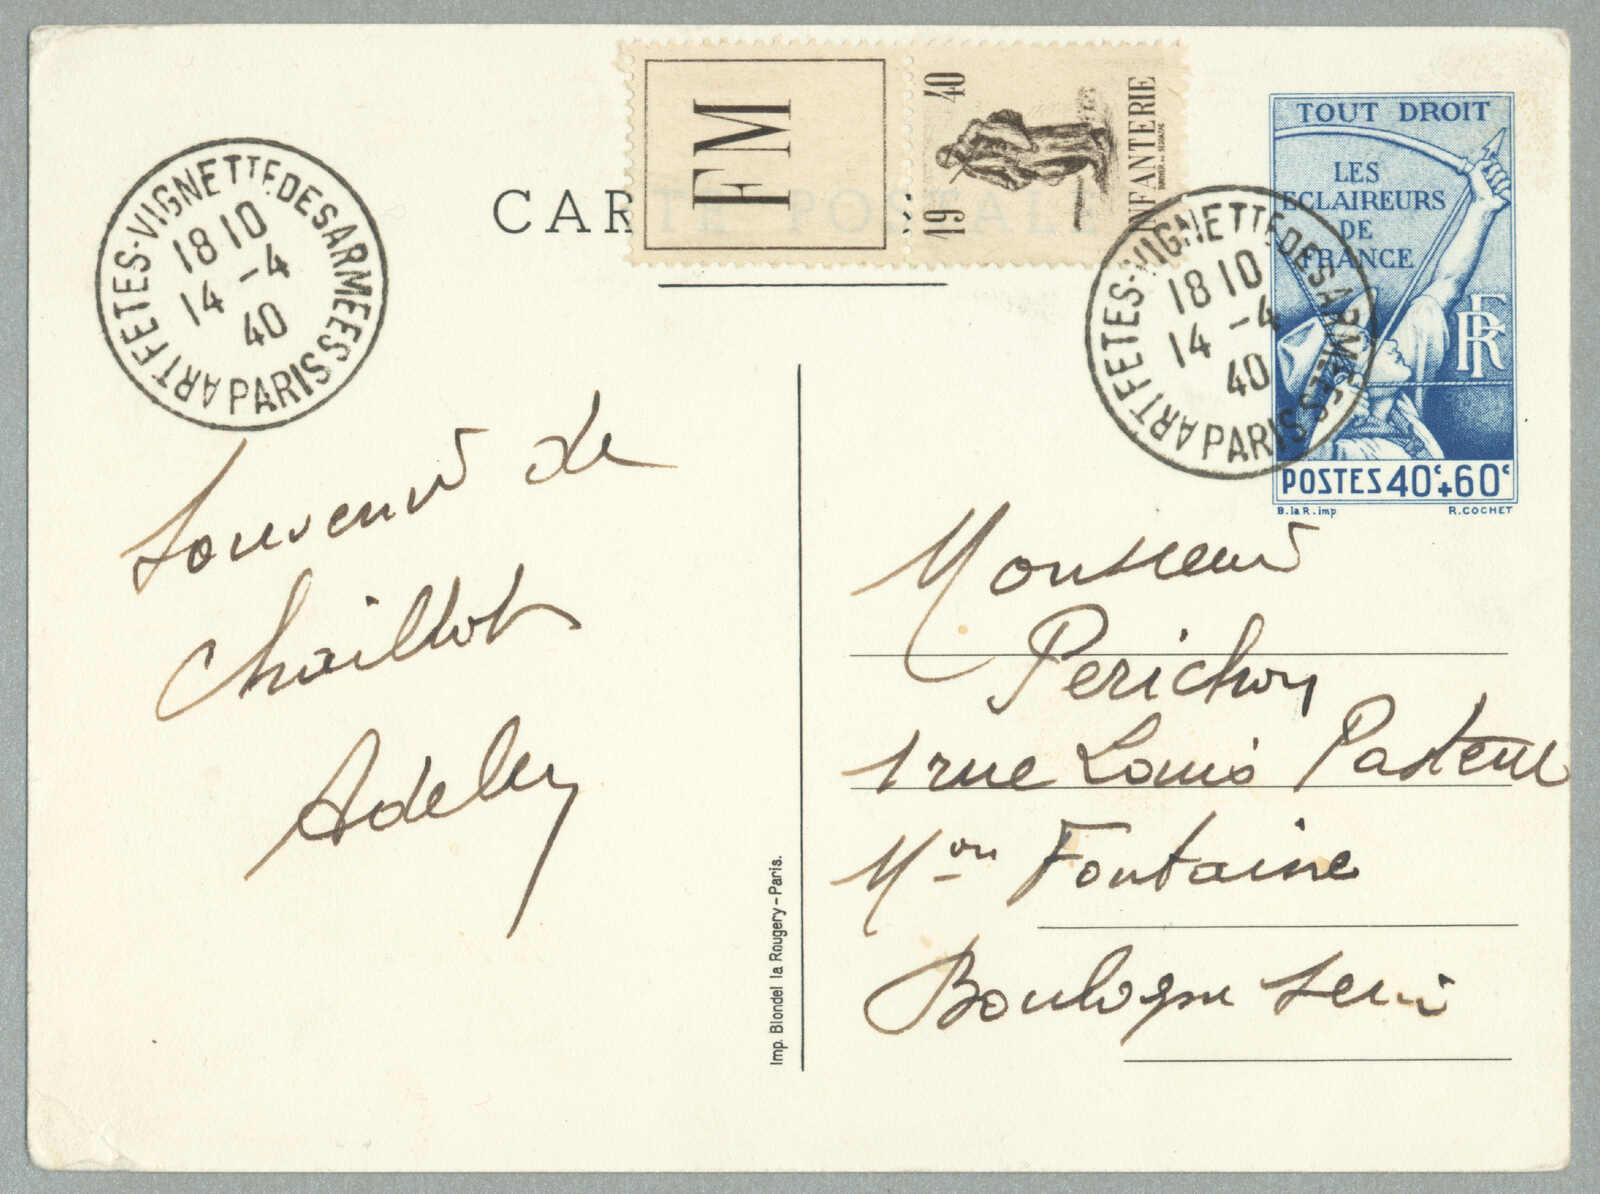 CARTE POSTALE
FM
19 40
INFANTERIE
TOUT DROIT
LES
ECLAIREURS
DE
FRANCE
RF
POSTES 40c+60c
B. la R. imp R. COCHET
ART FETES-VIGNETTE DES ARMEES
18 10
14 -4
40
PARIS
ART FETES-VIGNETTE DES ARMEES
18 10
14 -4
40
PARIS
Souvenir de
Chaillot
Imp. Blondel la Rougery-Paris.
Monsieur
Perichon
1 rue Louis Pasteur
Mon Fontaine
Boulogne Seine